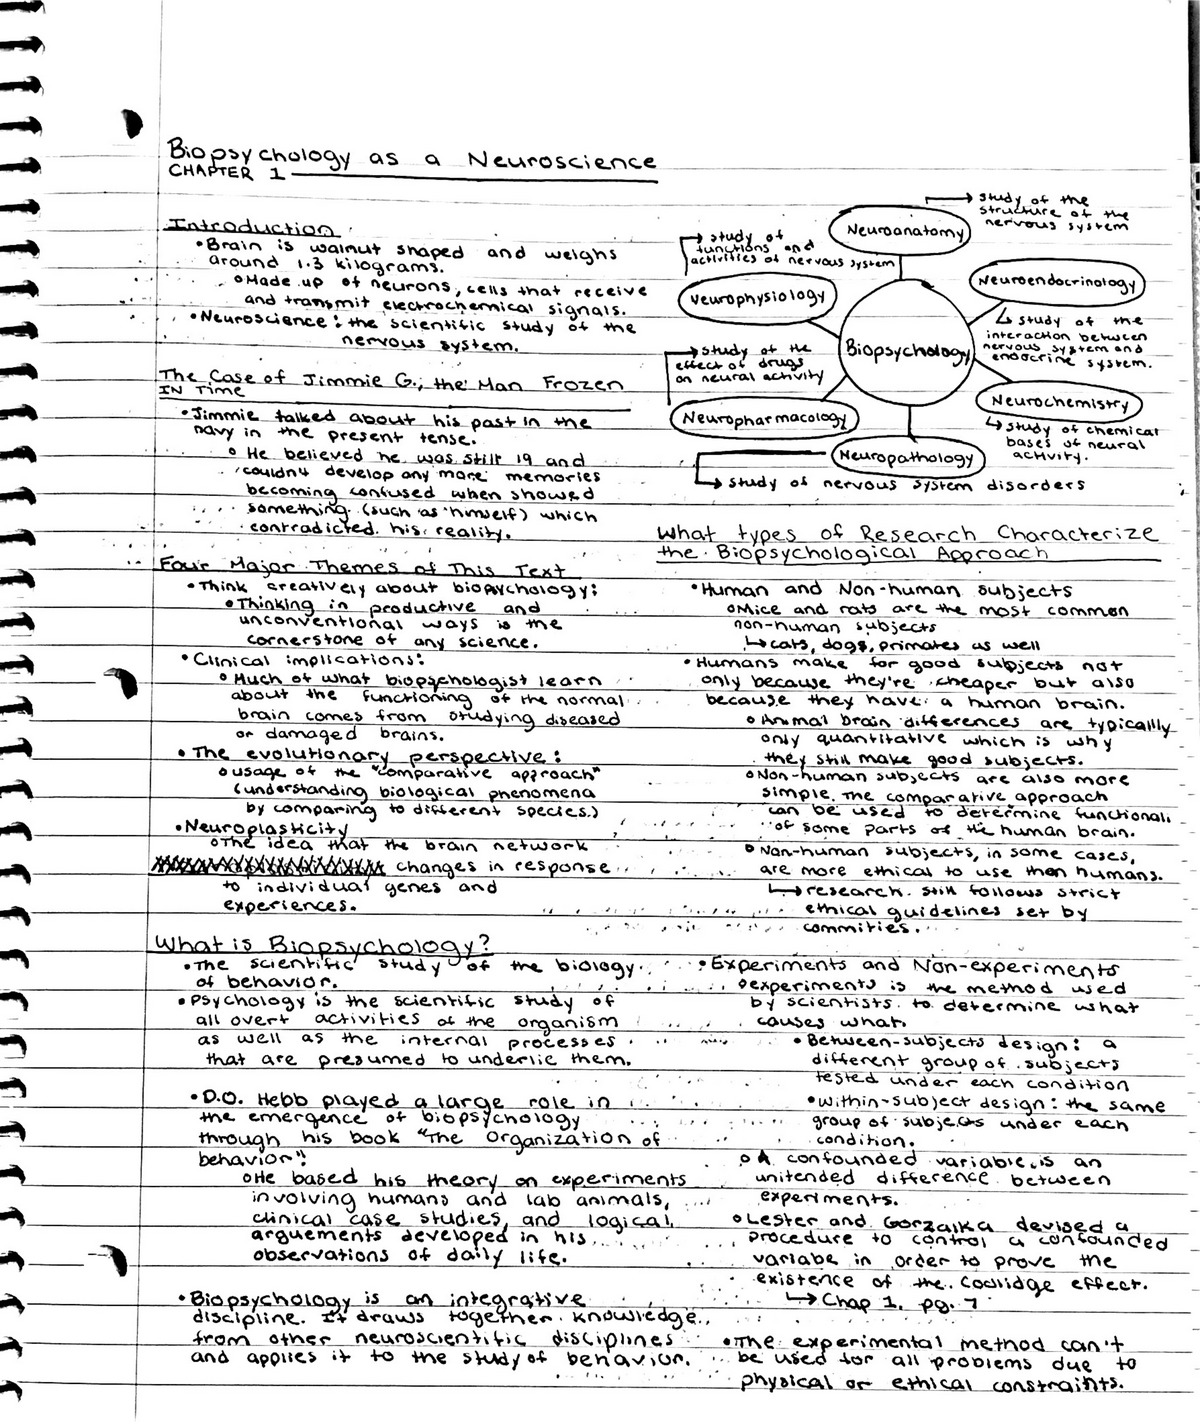 Biopsychology as a Neuroscience
CHAPTER 1
Introduction
• Brain is walnut shaped and weighs
around 1.3 kilograms.
o Made up of neurons, cells that receive
and transmit electrochemical signals.
• Neuroscience: the scientific study of the
nervous system.
The Case of Jimmie G., the Man Frozen
IN Time
• Jimmie talked about his past in the
navy in the present tense.
o He believed he was still 19 and
couldn't develop any more memories
becoming confused when showed
something (such as himself) which
contradicted his reality.
Four Major Themes of This Text
• Think creatively about biopsychology:
• Thinking in productive and
unconventional ways is the
cornerstone of any science.
• Clinical implications:
o Much of what biopsychologist learn
about the functioning of the normal
brain comes from studying diseased
or damaged brains.
• The evolutionary perspective:
o usage of the "comparative approach"
(understanding biological phenomena
by comparing to different species.)
• Neuroplasticity
o The idea that the brain network
changes in response
to individual genes and
experiences.
What is Biopsychology?
• The scientific study of the biology
of behavior.
• Psychology is the scientific study of
all overt activities of the organism
as well as the internal processes
that are presumed to underlie them.
• D.O. Hebb played a large role in
the emergence of biopsychology
through his book "The Organization of
behavior".
o He based his theory on experiments
involving humans and lab animals,
clinical case studies, and logical
arguements developed in his
observations of daily life.
• Biopsychology is an integrative
discipline. It draws together knowledge
from other neuroscientific disciplines
and applies it to the study of behavior.
Biopsychology
Neuroanatomy
→ study of the
structure of the
nervous system
Neurophysiology
→ study of
functions and
activities of nervous system
Neuroendocrinology
↳ study of the
interaction between
nervous system and
endocrine system.
Neuropharmacology
→ study of the
effect of drugs
on neural activity
Neurochemistry
↳ study of chemical
bases of neural
activity.
Neuropathology
→ study of nervous system disorders
What types of Research Characterize
the Biopsychological Approach
• Human and Non-human subjects
o Mice and rats are the most common
non-human subjects
↳ cats, dogs, primates as well
• Humans make for good subjects not
only because they're cheaper but also
because they have a human brain.
o Animal brain differences are typically
only quantitative which is why
they still make good subjects.
o Non-human subjects are also more
simple. The comparative approach
can be used to determine functionali
of some parts of the human brain.
o Non-human subjects, in some cases,
are more ethical to use then humans.
↳ research still follows strict
ethical guidelines set by
commities.
• Experiments and Non-experiments
o experiments is the method used
by scientists to determine what
causes what.
• Between-subjects design: a
different group of subjects
tested under each condition
• Within-subject design: the same
group of subjects under each
condition.
o A confounded variable is an
unitended difference between
experiments.
o Lester and Gorzalka devised a
procedure to control a confounded
variabe in order to prove the
existence of the Coolidge effect.
↳ Chap 1, pg. 7
• The experimental method can't
be used for all problems due to
physical or ethical constraints.